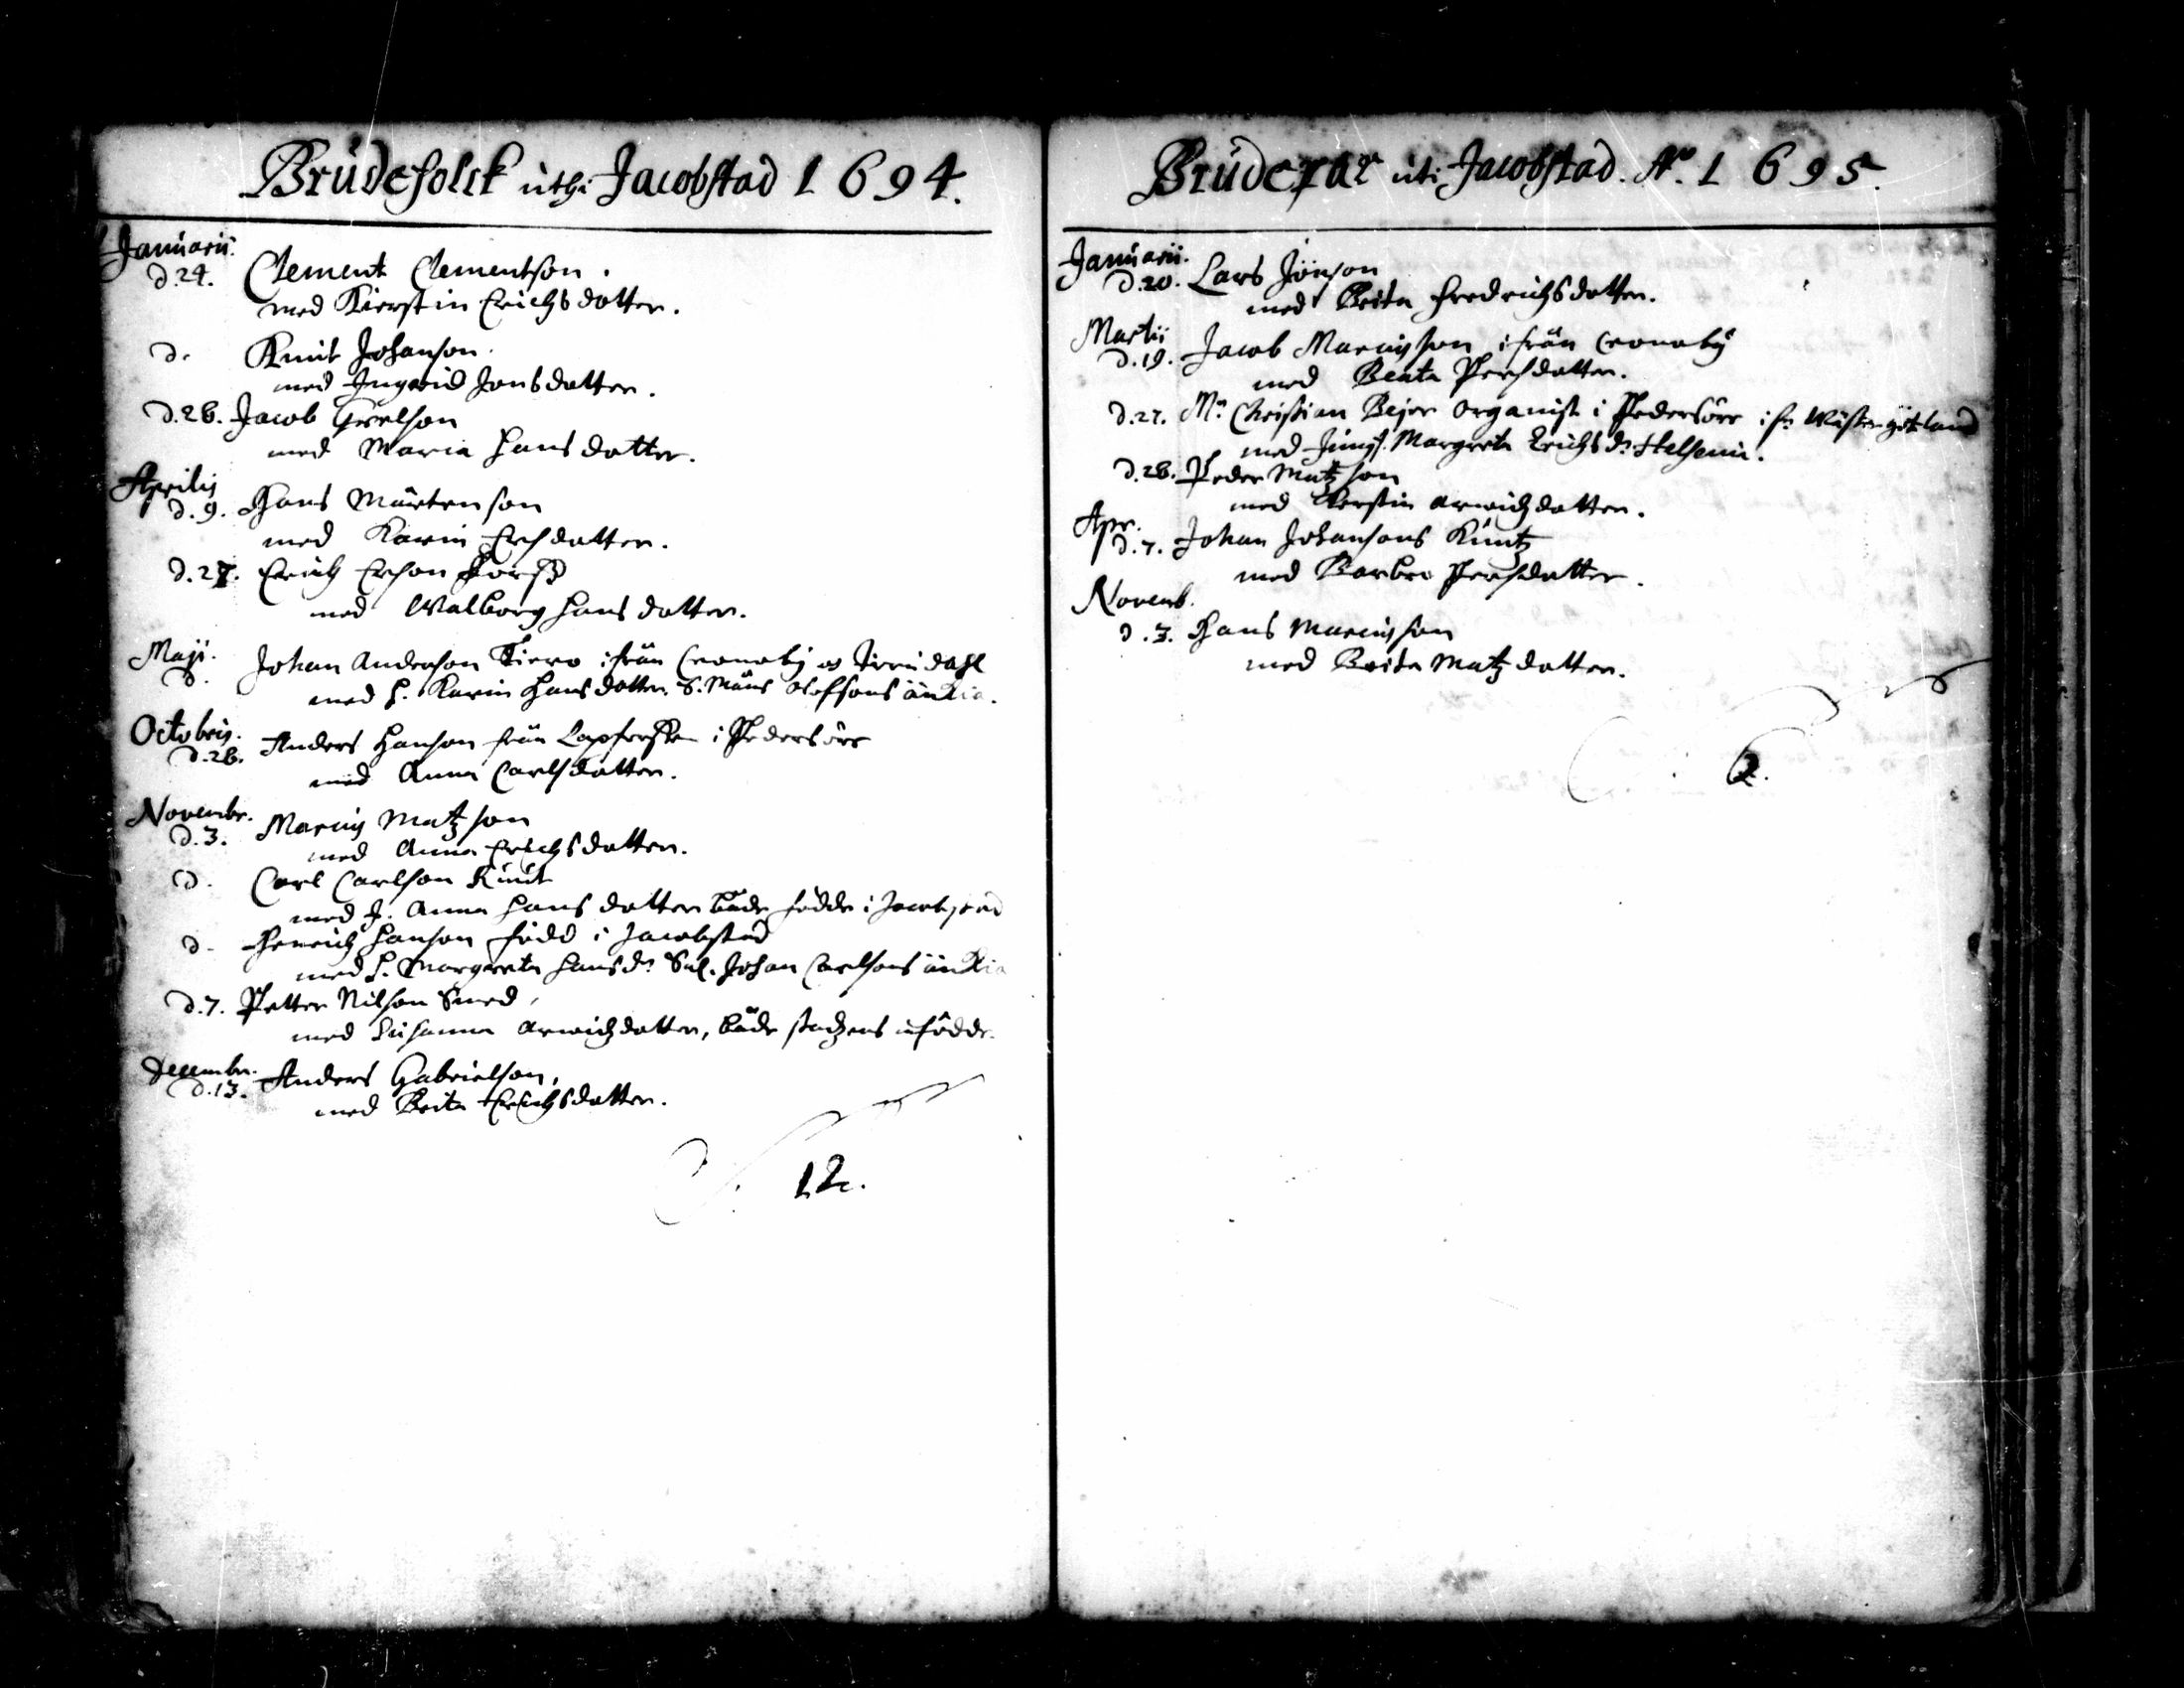 Brudefolck uthi Jacobstad 1694.
Januarii.
d. 24. Clement Clementson.
med Kierstin Erichsdotter.
d. Knut Johanson.
med Ingerid Jonsdotter.
d. 26. Jacob Grelson
med Maria Hansdotter.
Aprilis
d. 9. Hans Mårtenson
med Karin Ersdotter.
d. 27. Erich Erson Forss
med Walborg Hansdotter.
Maji.
d. Johan Anderson Tiero ifrån Cronoby
med H. Karin Hansdotter. S. Måns Olofsons änkia.
Octobris.
d. 26. Anders Hanson från Lapforss i Pedersöre
med Anna Carlsdotter.
Novembr.
d. 3. Marcus Matzson
med Anna Erichsdotter.
d. Carl Carlson Knut
med J. Anna Hansdotter både födde i Jacobstad
d. Henrich Hanson född i Jacobstad
med H. Margreta Hansdr. Sal. Johan Carlsons änkia
d. 7. Petter Nilson Smed,
med Susanna Arwidzdotter, både stadzens infödde.
Decembr.
d. 13. Anders Gabrielson,
med Brita Erichsdotter.
12.
Brudepar uti Jacobstad. Ao. 1695.
Januarii.
d. 20. Lars Jönson
med Brita Fredrichsdotter.
Martii
d. 19. Jacob Marcusson ifrån Cronoby
med Beata Persdotter.
d. 27. Mr. Christian Bejer Organist i Pedersöre ifr. Wästergötland
med Jungf. Margreta Erichsdr.
d. 28. Peder Matzson
med Kerstin Arwidzdotter.
Apr.
d. 7. Johan Johansons Kuntz
med Barbro Persdotter.
Novemb.
d. 3. Hans Marcusson
med Brita Matzdotter.
6.